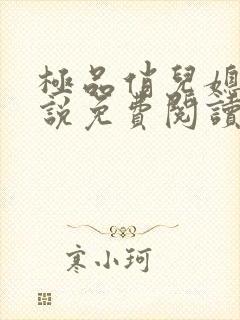 極品俏兒媳
說免費閱讀
寒小珂